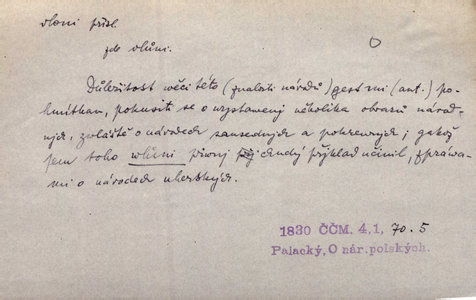 vloni přísl.
zde vlůni.
O
Důležitost wěci této (znalosti národů) gest mi (aut.) po-
hnútkau, pokusiti se o wystawený několika obrazů národ-
ných, zwláště o národech sausedných a pokrewných; jakož
jsem toho wlůni prwný chudý přjklad učinil, zpráwa-
mi o národech uherských.
1830 ČČM. 4,1, 70.5
Palacký, O nár. polských.